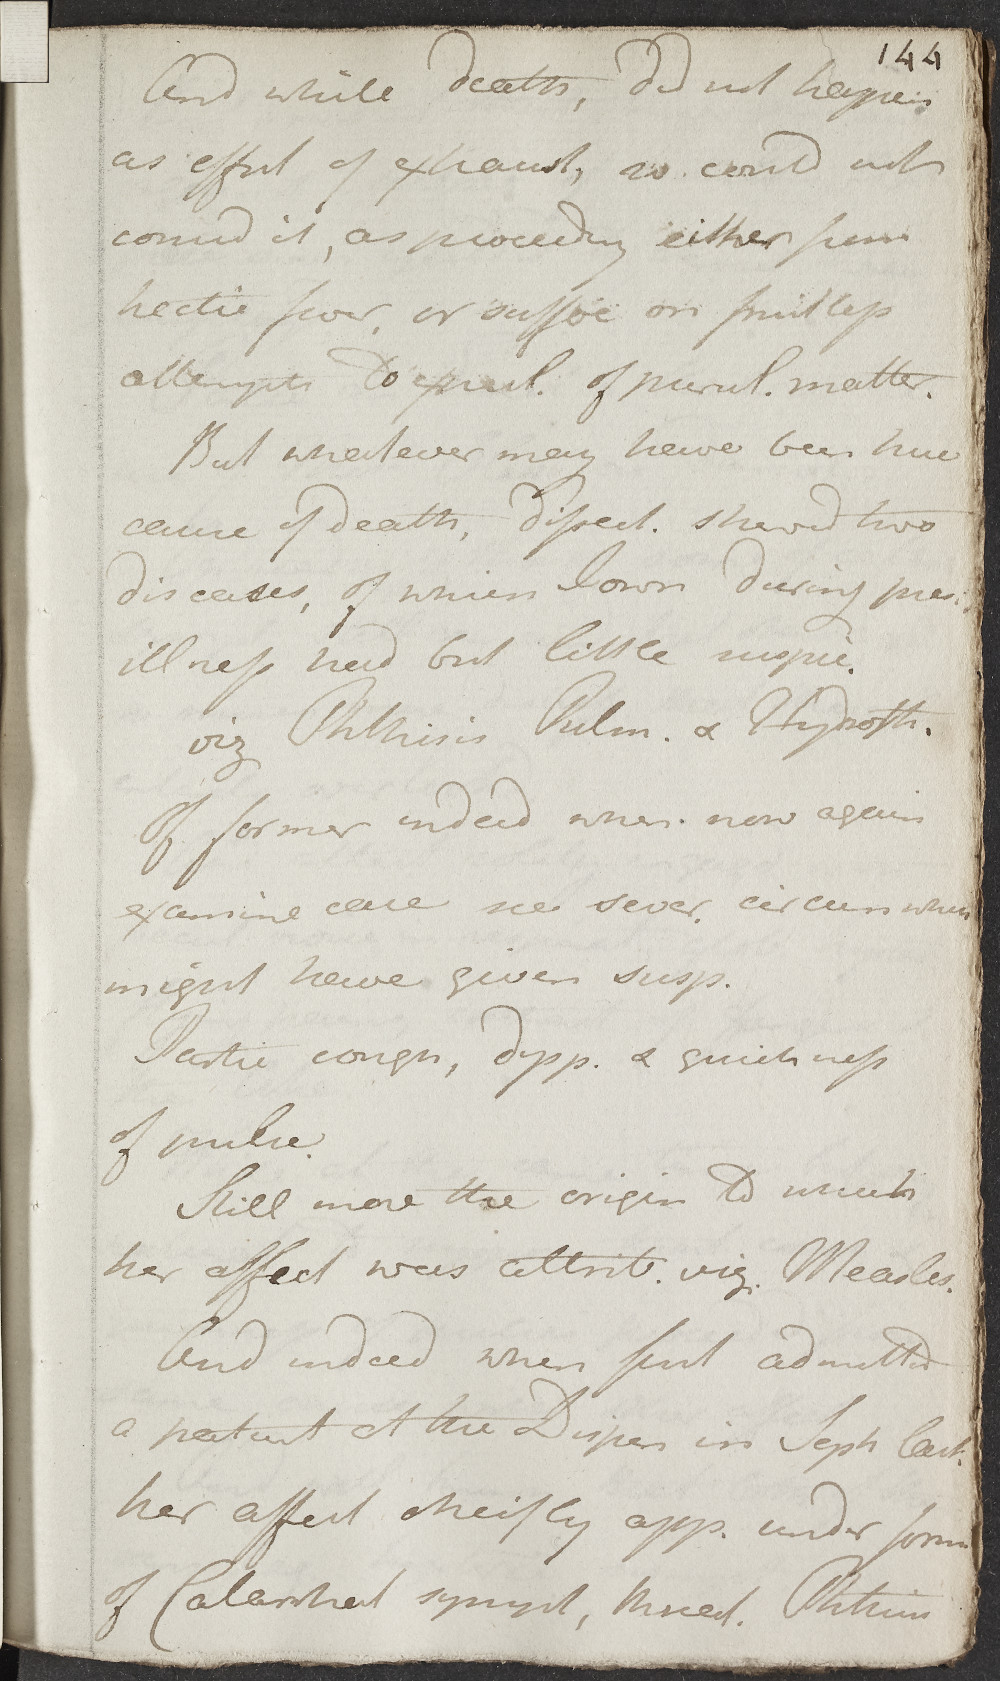 144
And while death, did not happen
as effect of exhaust, so could not
consid it, as proceeding either from
hectic fever, or suffoc on fruitless
attempts to expul. of purul. matter.
But whatever may have been true
cause of death, dissect. shewed two
diseases, of which I own during pres.
illness had but little suspic.
viz Phthisis Pulm. & Hydroth.
Of former indeed when now again
examine case see sever. circum which
might have given susp.
cough, dysp. & quickness
of pulse.
Still more the origin to which
her affect was attrib. viz. Measles.
And indeed when first admitted
a patient at the Dispen in Sept last.
her affect cheifly app. under form
of Catarrhal sympt, threat. Phthisis